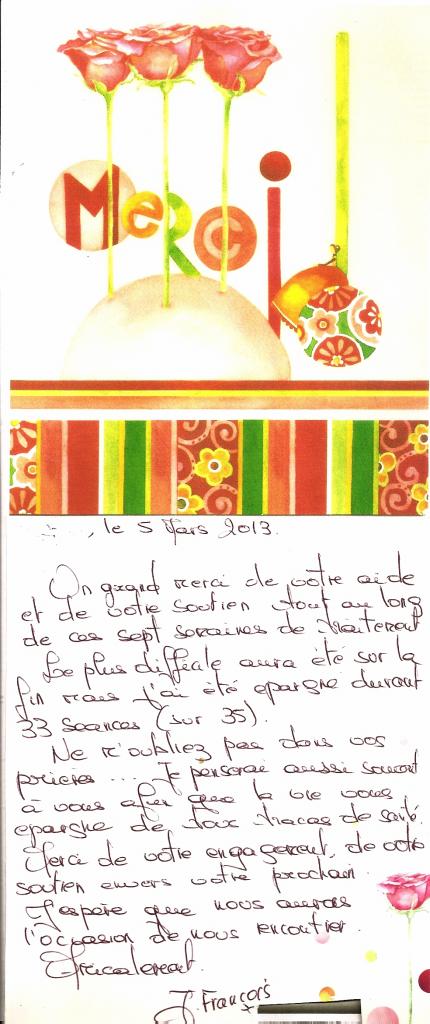 Merci
, le 5 Mars 2013.
Un grand merci de votre aide
et de votre soutien tout au long
de ces sept semaines de traitement
Le plus difficile aura été sur la
fin mais j'ai été épargné durant
33 séances (sur 35).
Ne m'oubliez pas dans vos
prières... Je penserai aussi souvent
à vous afin que la vie vous
épargne de tous tracas de santé.
Merci de votre engagement, de votre
soutien envers votre prochain.
J'espère que nous aurons
l'occasion de nous rencontrer.
Amicalement.
J. François